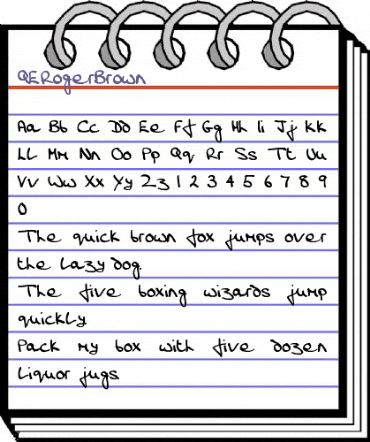 QERogerBrown
Aa Bb Cc Dd Ee Ff Gg Hh Ii Jj Kk
Ll Mm Nn Oo Pp Qq Rr Ss Tt Uu
Vv Ww Xx Yy Zz 1 2 3 4 5 6 7 8 9
0
The quick brown fox jumps over
the lazy dog
The five boxing wizards jump
quickly
Pack my box with five dozen
liquor jugs